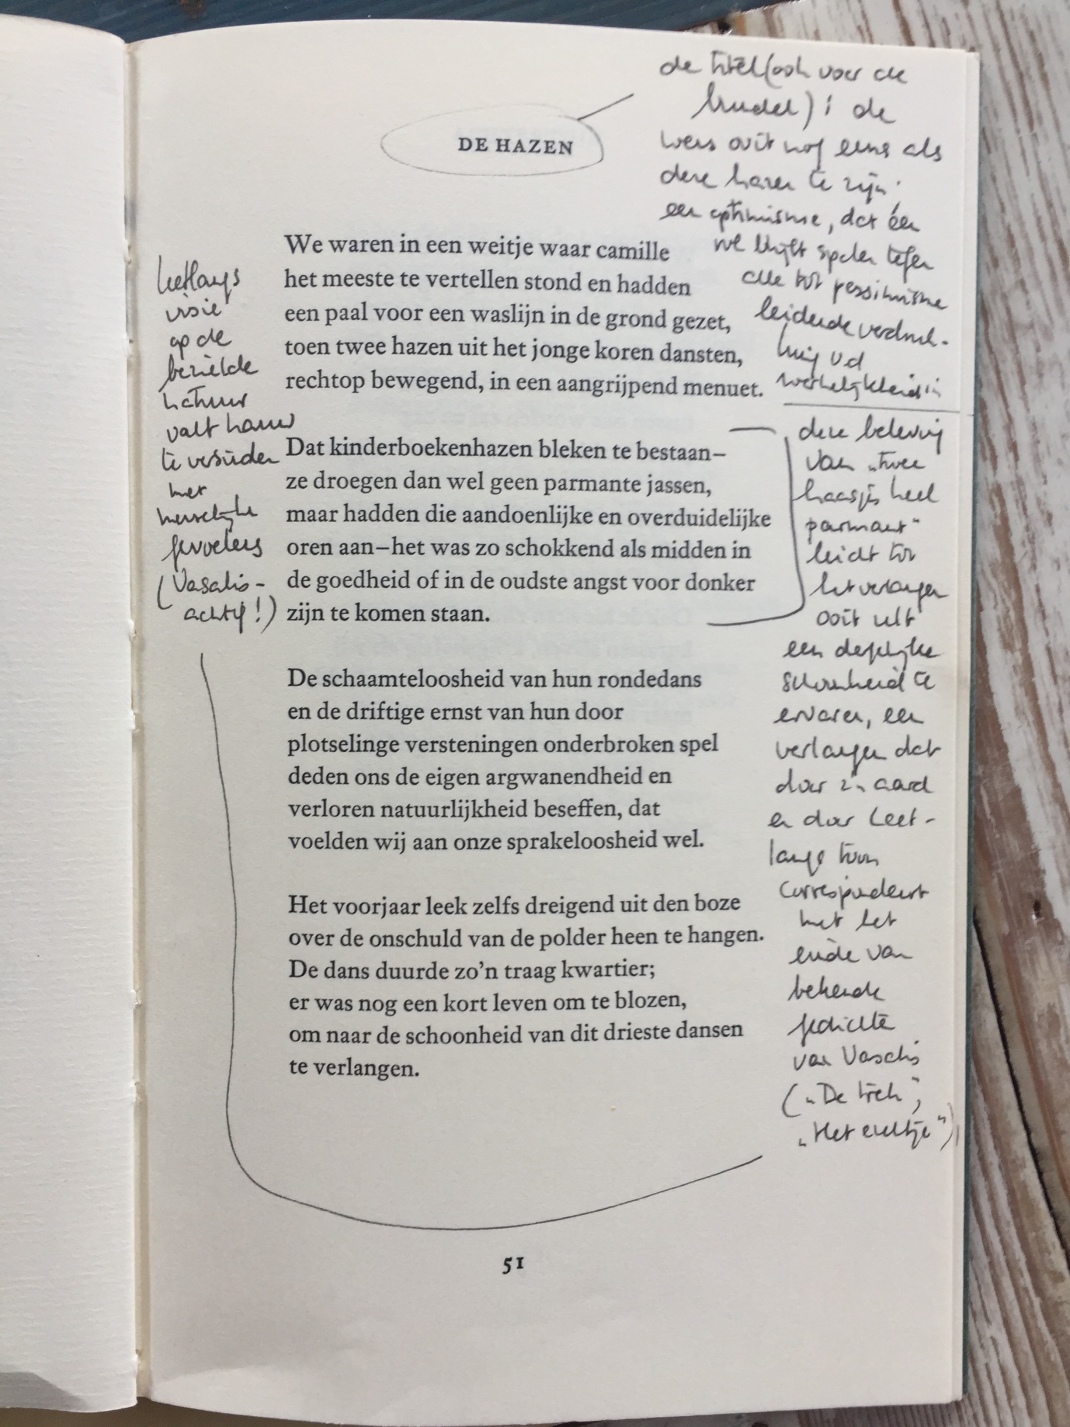 DE HAZEN
de titel (ook voor de
bundel): de
wens ooit nog eens als
deze hazen te zijn:
een optimisme, dat één
we blijft spelen tegen
alle tot pessimisme
leidende verdruk-
king vd
werkelijkheid in
We waren in een weitje waar camille
het meeste te vertellen stond en hadden
een paal voor een waslijn in de grond gezet,
toen twee hazen uit het jonge koren dansten,
rechtop bewegend, in een aangrijpend menuet.
Leetlangs
visie
op de
bezielde
natuur
valt
te
met
menselijke
gevoelens
(Vasalis-
achtig!)
Dat kinderboekenhazen bleken te bestaan–
ze droegen dan wel geen parmante jassen,
maar hadden die aandoenlijke en overduidelijke
oren aan–het was zo schokkend als midden in
de goedheid of in de oudste angst voor donker
zijn te komen staan.
deze beleving
van „twee
haasjes heel
parmant"
leidt tot
het verlangen
ooit
een dergelijke
schoonheid te
ervaren, een
verlangen dat
door z'n aard
en door Leet-
langs toon
correspondeert
met het
einde van
bekende
gedichten
van Vasalis
(„De trek",
„Het ezeltje")
De schaamteloosheid van hun rondedans
en de driftige ernst van hun door
plotselinge versteningen onderbroken spel
deden ons de eigen argwanendheid en
verloren natuurlijkheid beseffen, dat
voelden wij aan onze sprakeloosheid wel.
Het voorjaar leek zelfs dreigend uit den boze
over de onschuld van de polder heen te hangen.
De dans duurde zo'n traag kwartier;
er was nog een kort leven om te blozen,
om naar de schoonheid van dit drieste dansen
te verlangen.
51